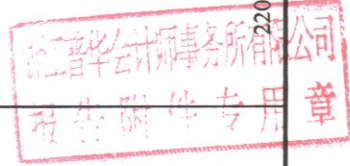 220
浙江普华会计师事务所有限公司
报告附件专用章